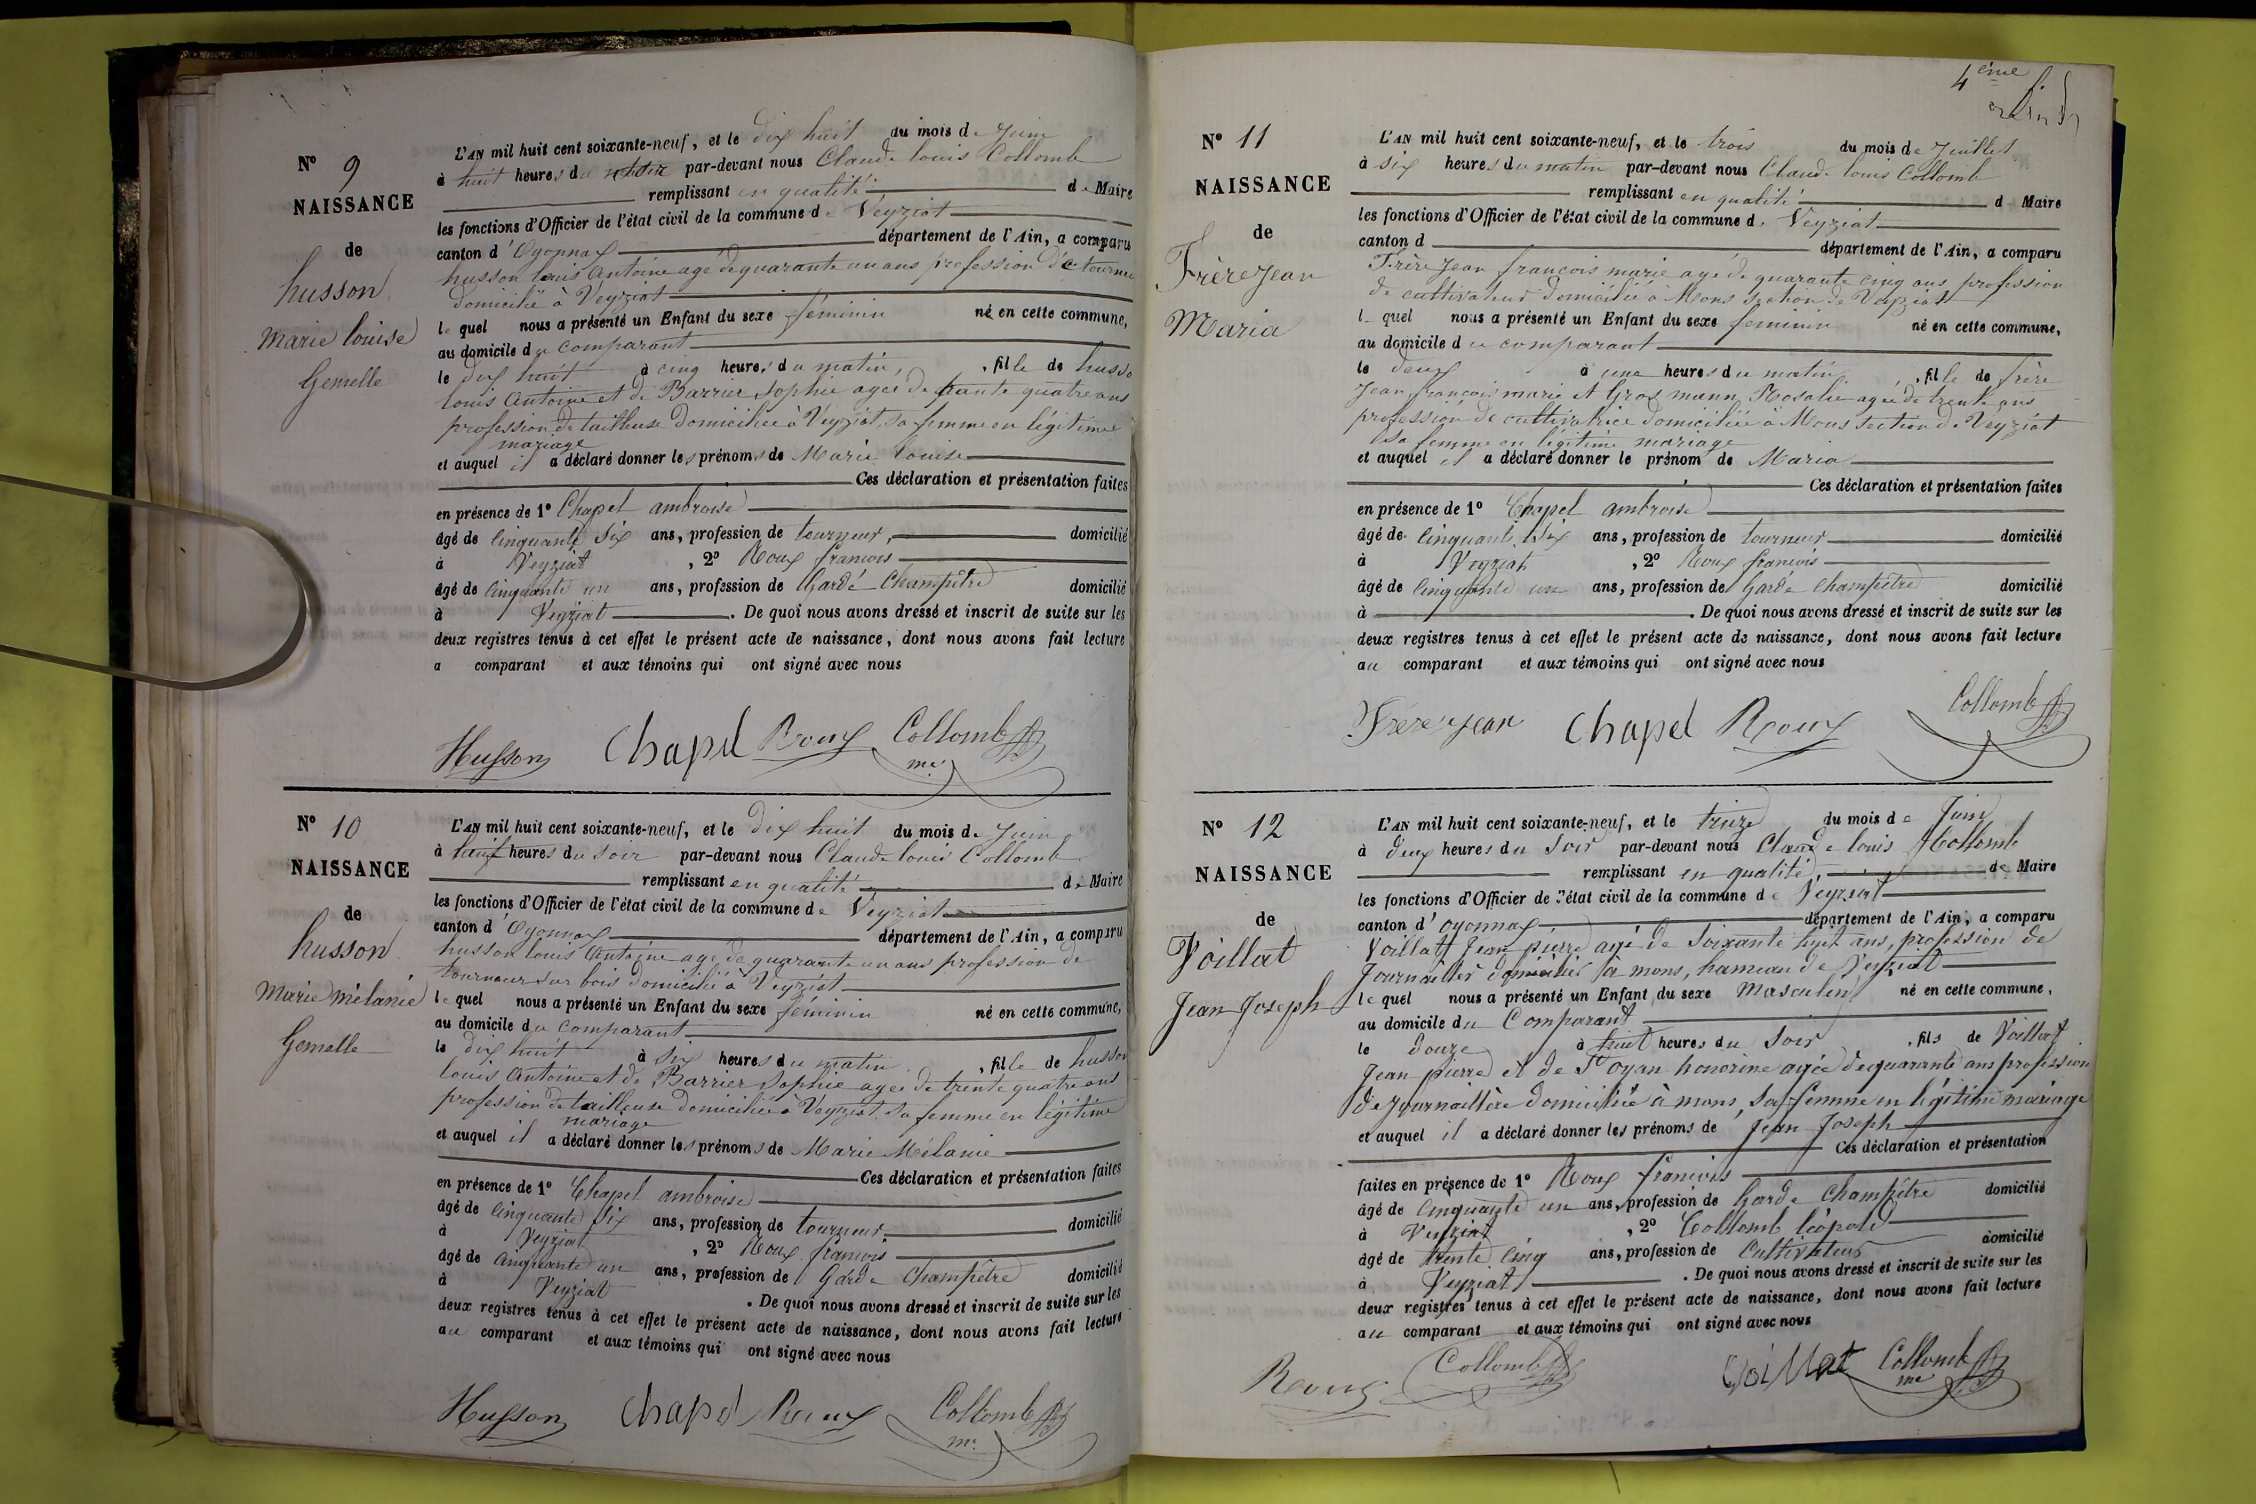 N° 9
NAISSANCE
de
husson
Marie louise
Gemelle
L'AN mil huit cent soixante-neuf, et le dix huit du mois de Juin
à huit heures du par-devant nous Claude louis Collomb
remplissant en qualité de Maire
les fonctions d'Officier de l'état civil de la commune de Veyziat
canton d'Oyonnax département de l'Ain, a comparu
husson louis Antoine agé de quarante un ans profession de tourneur
domicilié à Veyziat
le quel nous a présenté un Enfant du sexe féminin né en cette commune,
au domicile du comparant
le dix huit à cinq heures du matin, fille de husson
louis Antoine et de Barrier Sophie agée de trante quatre ans
profession de tailleuse domiciliée à Veyziat, sa femme en légitime
mariage
et auquel il a déclaré donner les prénoms de Marie louise
Ces déclaration et présentation faites
en présence de 1° Chapel ambroise
âgé de cinquante six ans, profession de tourneur, domicilié
à Veyziat, 2° Roux francois
âgé de cinquante un ans, profession de Garde Champêtre domicilié
à Veyziat. De quoi nous avons dressé et inscrit de suite sur les
deux registres tenus à cet effet le présent acte de naissance, dont nous avons fait lecture
a comparant et aux témoins qui ont signé avec nous
Husson Chapel Roux Collomb
me
N° 10
NAISSANCE
de
husson
Marie mélanie
Gemelle
L'AN mil huit cent soixante-neuf, et le dix huit du mois de Juin
à huit heures du soir par-devant nous Claude louis Collomb
remplissant en qualité de Maire
les fonctions d'Officier de l'état civil de la commune de Veyziat
canton d'Oyonnax département de l'Ain, a comparu
husson louis Antoine agé de quarante un ans profession de
tourneur sur bois domicilié à Veyziat
le quel nous a présenté un Enfant du sexe féminin né en cette commune,
au domicile du comparant
le dix huit à six heures du matin, fille de husson
louis Antoine et de Barrier Sophie agée de trente quatre ans
profession de tailleuse domiciliée à Veyziat, sa femme en légitime
mariage
et auquel il a déclaré donner les prénoms de Marie Mélanie
Ces déclaration et présentation faites
en présence de 1° Chapel ambroise
âgé de cinquante six ans, profession de tourneur domicilié
à Veyziat, 2° Roux francois
âgé de cinquante un ans, profession de Garde Champêtre domicilié
à Veyziat. De quoi nous avons dressé et inscrit de suite sur les
deux registres tenus à cet effet le présent acte de naissance, dont nous avons fait lecture
au comparant et aux témoins qui ont signé avec nous
Husson Chapel Roux Collomb
me
4ème
N° 11
NAISSANCE
de
FrèreJean
Maria
L'AN mil huit cent soixante-neuf, et le trois du mois de Juillet
à six heures du matin par-devant nous Claude louis Collomb
remplissant en qualité d Maire
les fonctions d'Officier de l'état civil de la commune d. Veyziat
canton d département de l'Ain, a comparu
Frère Jean francois marie agé de quarante cinq ans profession
de cultivateur domicilié à Mons section de Veyziat
l quel nous a présenté un Enfant du sexe feminin né en cette commune,
au domicile du comparant
le deux à une heures du matin, fille de frère
Jean francois marie et Gros mann Rosalie agée de trente ans
profession de cultivatrice domiciliée à Mons section de Veyziat
sa femme en légitime mariage
et auquel il a déclaré donner le prénom de Maria
Ces déclaration et présentation faites
en présence de 1° Chapel ambroise
âgé de cinquante six ans, profession de tourneur domicilié
à Veyziat, 2° Roux francois
âgé de cinquante un ans, profession de Garde Champêtre domicilié
à . De quoi nous avons dressé et inscrit de suite sur les
deux registres tenus à cet effet le présent acte de naissance, dont nous avons fait lecture
au comparant et aux témoins qui ont signé avec nous
Frère Jean Chapel Roux Collomb
N° 12
NAISSANCE
de
Voillat
Jean Joseph
L'AN mil huit cent soixante-neuf, et le treize du mois de Juin
à deux heures du Soir par-devant nous Claude louis Collomb
remplissant en qualité, de Maire
les fonctions d'Officier de l'état civil de la commune de Veyziat
canton d'oyonnax département de l'Ain, a comparu
Voillat Jean pierre agé de Soixante huit ans, profession de
Journailler domicilié à mons, hameau de Veyziat
le quel nous a présenté un Enfant du sexe Masculin né en cette commune,
au domicile du Comparant
le douze à huit heures du Soir, fils de Voillat
Jean pierre et de St oyan honorine agée de quarante ans profession
de Journaillère domiciliée à mons, sa femme en légitime mariage
et auquel il a déclaré donner les prénoms de Jean Joseph
Ces déclaration et présentation
faites en présence de 1° Roux francois
âgé de cinquante un ans, profession de Garde Champêtre domicilié
à Veyziat, 2° Collomb léopold
âgé de trente cinq ans, profession de Cultivateur domicilié
à Veyziat. De quoi nous avons dressé et inscrit de suite sur les
deux registres tenus à cet effet le présent acte de naissance, dont nous avons fait lecture
au comparant et aux témoins qui ont signé avec nous
Roux Collomb Voillat Collomb
me